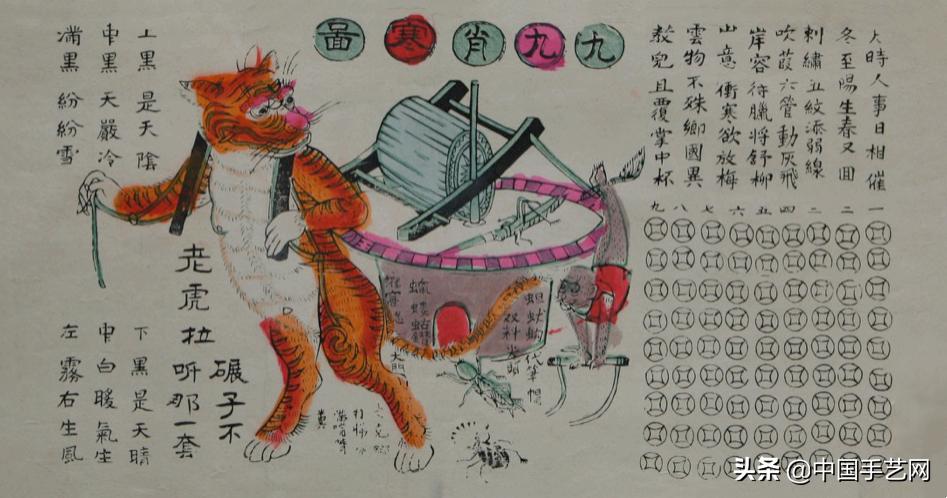 九九肖寒啚
天時人事日相催
冬至陽生春又囬
刺繡五紋添弱線
吹葭六管動灰飛
岸容待臘將舒柳
山意衝寒欲放梅
雲物不殊鄉國異
教兒且覆掌中杯
一 二 三 四 五 六 七 八 九
上黑是天陰
中黑天嚴冷
滿黑紛紛雪
下黑是天晴
中白暖氣生
左霧右生風
老虎拉
碾子不
听那一套
头条 @中国手艺网